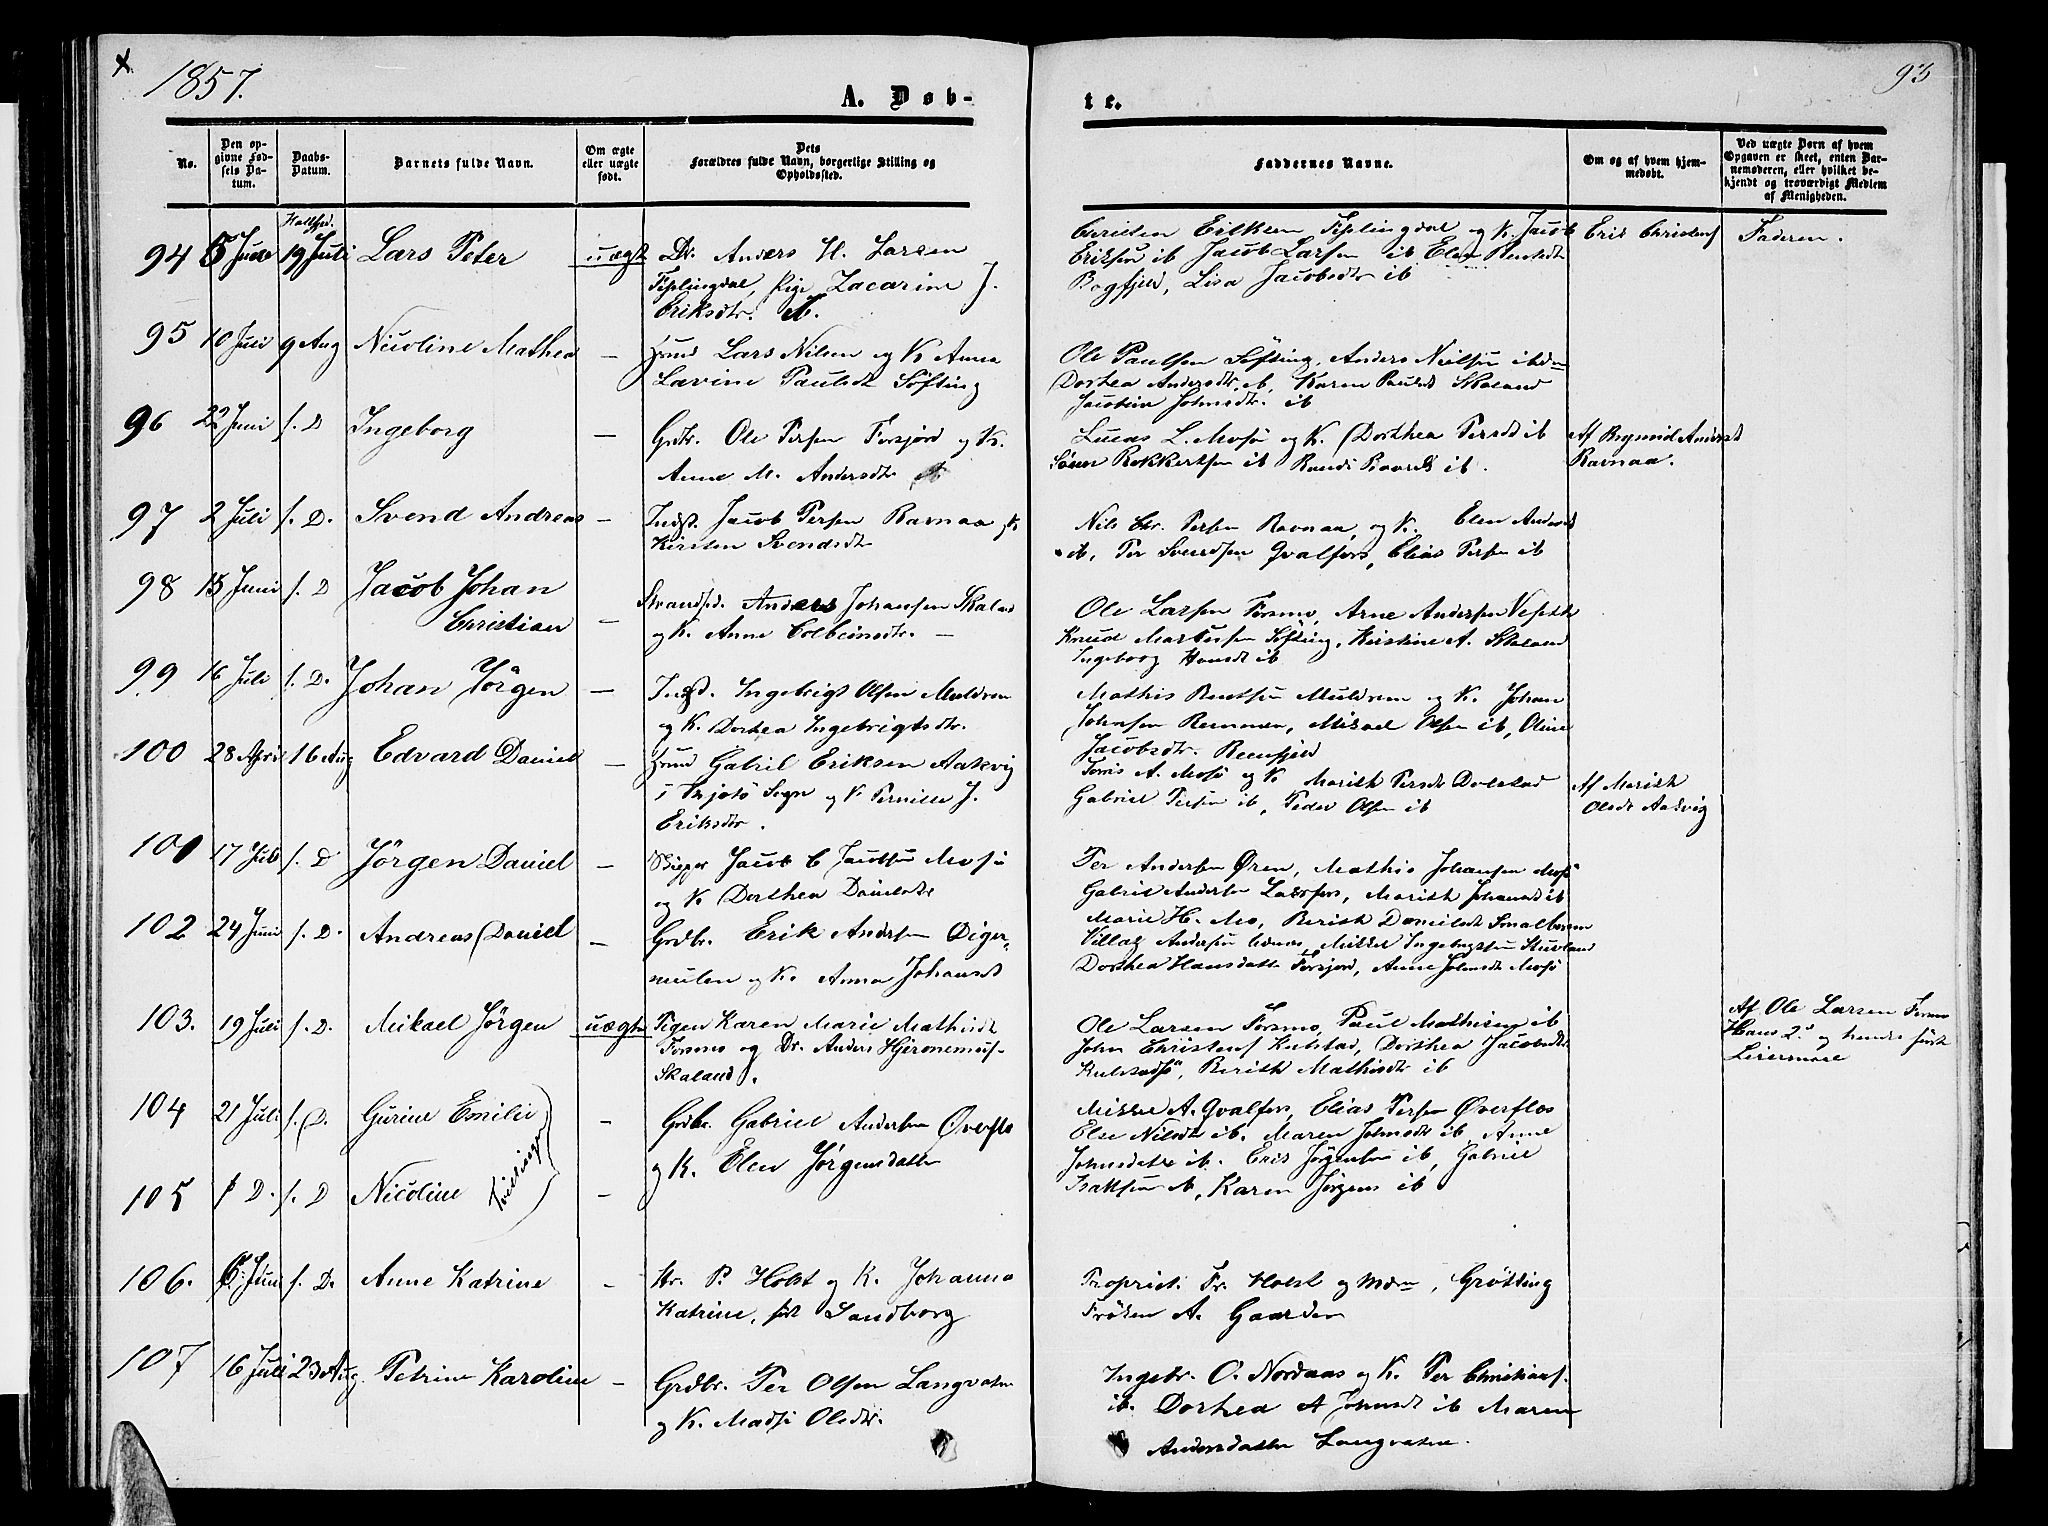 1857.
A. Døb-
te.
93
No.
Den opgivne Fødsels Datum.
Daabs-Datum.
Barnets fulde Navn.
Om ægte eller uægte født.
Dets Forældres fulde Navn, borgerlige Stilling og Opholdssted.
Faddernes Navne.
Om og af hvem hjemmedøbt.
Ved uægte Børn af hvem Opgaven er skeet, enten Barnemoderen, eller hvilket bekjendt og troværdigt Medlem af Menigheden.
94 5 Juni 19 Juli Lars Peter uægte Dr. Anders H. Larsen
Fiplingdal, Pige Zacarine J.
Eriksdtr. ib.
Eriksen Fiplingdal og K. Jacob
Eriksen ib Jacob Larsen ib Elen
Lisa Jacobsdtr ib
Faderen.
95 10 Juli 9 Aug Nicoline Mathea — Hmd Lars Nilsen og K Anna
Lavine Paulsdt Søfting
Ole Paulsen Søfting, Anders Nielsen
Dorthea Andersdtr. ib, Karen Paulsdt Skaland
Johnsdtr. ib
96 22 Juni s. D Ingeborg — Grdbr. Ole Persen Forsjord og K.
Anne M. Andersdtr ib
Lucas L. Mosjø og K. Dorthea Persdt ib
ib Randi ib.
Af Andersdt
Ravnaa.
97 2 Juli s. D. Svend Andreas — Indst. Jacob Persen Ravnaa og K
Kirsten Svendsdtr
Nils Chr. Persen Ravnaa, og K. Elen Andersdt
ib, Per Svendsen Qvalfors, Elias Persen ib
98 15 Juni s. D Jacob Johan
Christian — Strandsd. Anders Johansen Skaland
og K. Anne Colbeinsdtr. —
Ole Larsen Forsmo, Arne Andersen
Knud Martinsen Søfting, Kirstine A. Skaland
Ingeborg Hansdt ib
99 16 Juli s. D. Johan Jørgen — Indst. Ingebrigt Olsen Muldrem
og K. Dorthea Ingebrigtsdtr.
Mathis Bentsen Muldrem og K. Johan
Johnsen Remmen, Mikael Olsen ib, Oline
Jacobsdtr.
100 28 April 16 Aug Edvard Daniel — Hmd Gabriel Eriksen Aakvig
i Sogn og K Pernille J.
Eriksdtr.
A. Mosjø og K Marith Persdt Dolstad
Gabriel Persen ib, Peder Olsen ib
Af Marith
Olsdt Aakvig
101 17 Juli s. D Jørgen Daniel — Skipper Jacob C Jacobsen Mosjø
og K Dorthea Danielsdtr
Per Andersen Øren, Mathis Johansen Mosjø
Gabriel Andersen Laksfors, Marith Johansdt ib
Marie H. Mo, Berith Danielsdt
102 24 Juni s. D. Andreas Daniel — Grdbr. Erik Andersen Diger-
mulen og K. Anna Johansdt
Andersen Mikkel Ingebrigtsen
Dorthea Hansdatter Forsjord, Anne Johnsdt Mosjø
103. 19 Juli s. D. Mikael Jørgen uægte Pigen Karen Marie Mathisdt
Forsmo og Dr. Anders Hjeronemus-
Skaland.
Ole Larsen Forsmo, Paul Mathisen ib
John Christens. Kulstad, Dorthea Jacobsdt
Kulstadsjø, Berith Mathisdtr ib
Af Ole Larsen Forsmo
Hans 2d og hendes første
Leiermaal
104 21 Juli s. D. Gurine Emilie — Grdbr. Gabriel Andersen Øverflo
og K. Elen Jørgensdatter
Mikkel A. Qvalfors, Elias Persen Øverflos
Else Nilsdt ib. Maren Johnsdt ib Anne
Johnsdatter ib. Eric Jørgensen ib, Gabriel
Isaksen ib, Karen Jørgens ib
Tvillinger
105 s D. s. D Nicoline —
106. 6 Juni s. D. Anne Katrine — Hr. P. Holst og K. Johanna
Katrine, født Sandborg
Propriet. Fr. Holst og , Grøtting
Frøken A. Gaarder
107 16 Juli 23 Aug. Petrine Karoline — Grdbr. Per Olsen Langvatn
og K. Olsdtr.
Ingebr. O. Nordaas og K. Per Christians.
ib. Dorthea A Johnsdt ib Maren
Andersdatter Langvatn.